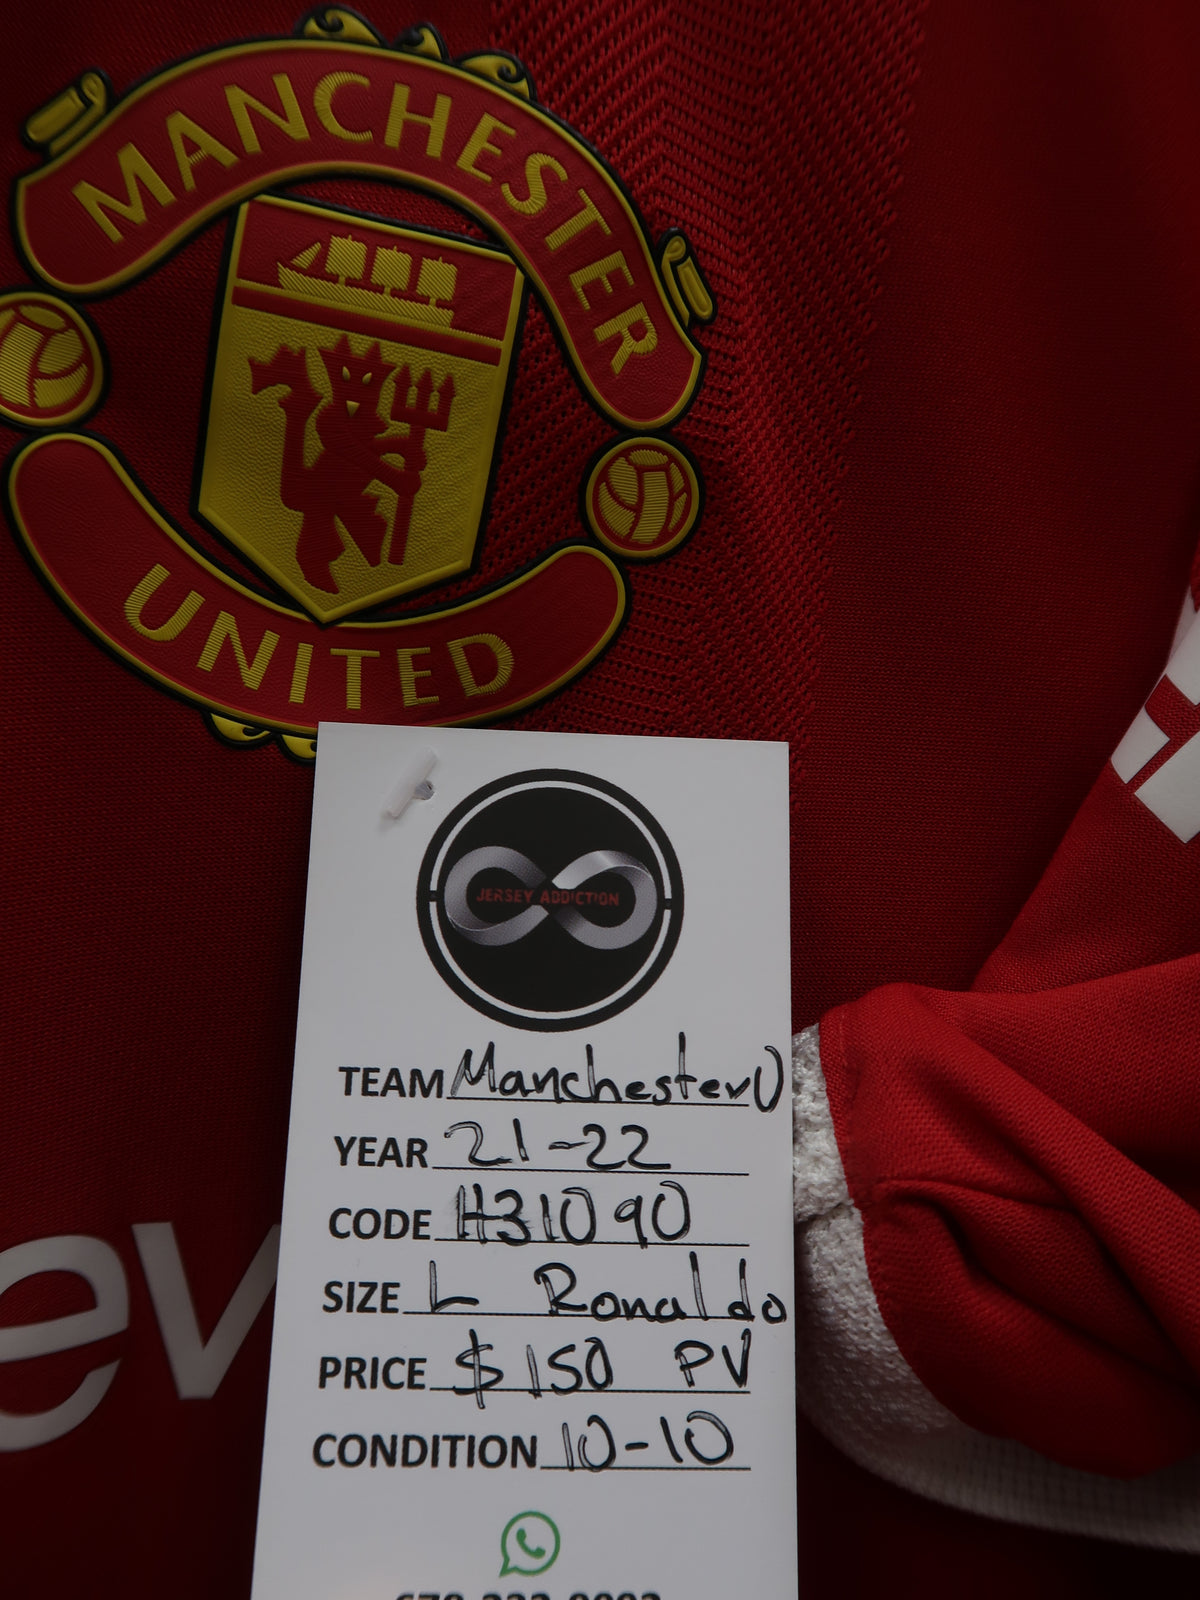 MANCHESTER
UNITED
JERSEY ADDICTION
TEAM Manchester U
YEAR 21-22
CODE H31090
SIZE L Ronaldo
PRICE $150 PV
CONDITION 10-10
ev